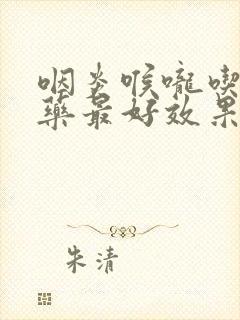 咽炎喉嚨喫
藥最好效果
朱清